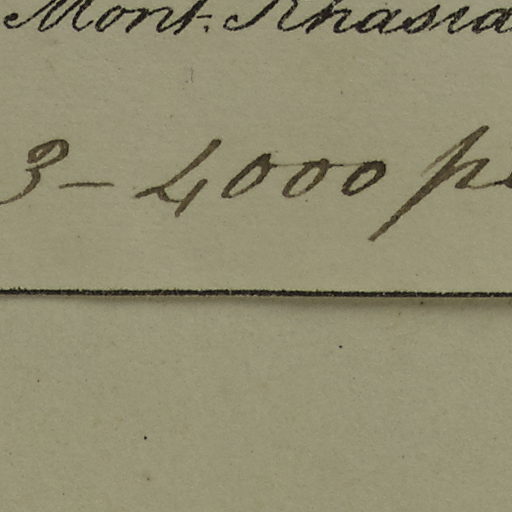 Mont. Khasia
3-4000 p